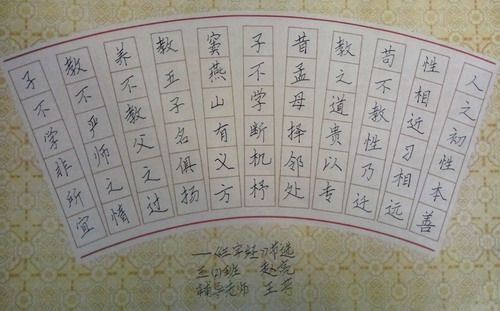 人之初性本善
性相近习相远
苟不教性乃迁
教之道贵以专
昔孟母择邻处
子不学断机杼
窦燕山有义方
教五子名俱扬
养不教父之过
教不严师之惰
子不学非所宜
——《三字经》节选
三(1)班 赵亮
辅导老师 王